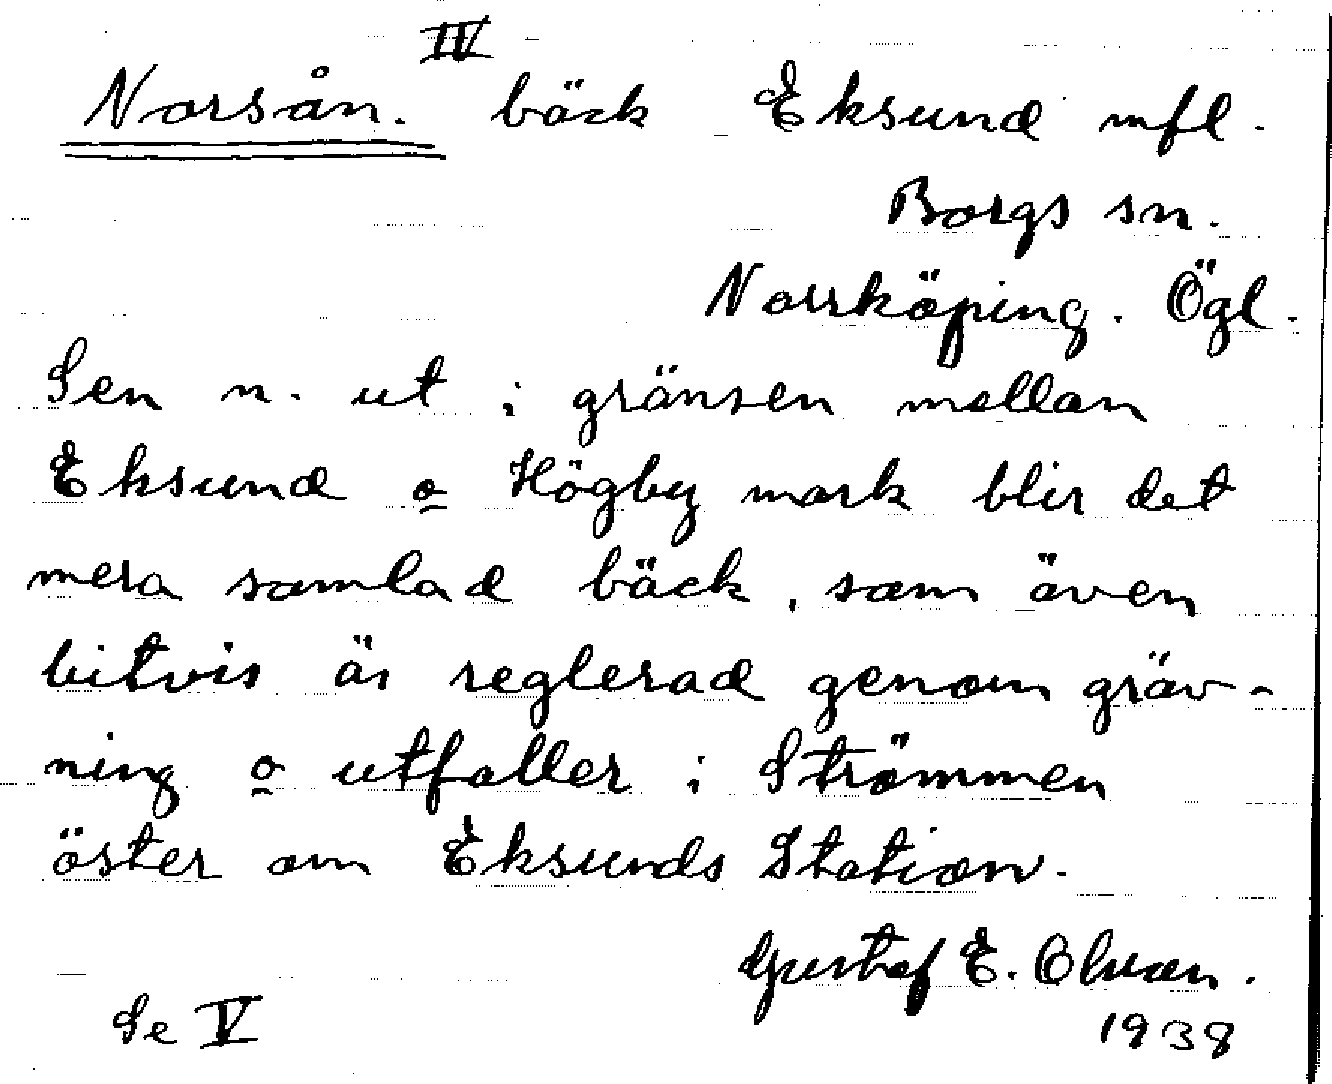 IV
Norsån. bäck Eksund mfl.
Borgs sn.
Norrköping. Ögl.
Sen n. ut i gränsen mellan
Eksund o Högby mark blir det
mera samlad bäck, som även
bitvis är reglerad genom gräv-
ning o utfaller i Strömmen
öster om Eksunds Station.
Gustaf E. Olsson.
Se V
1938